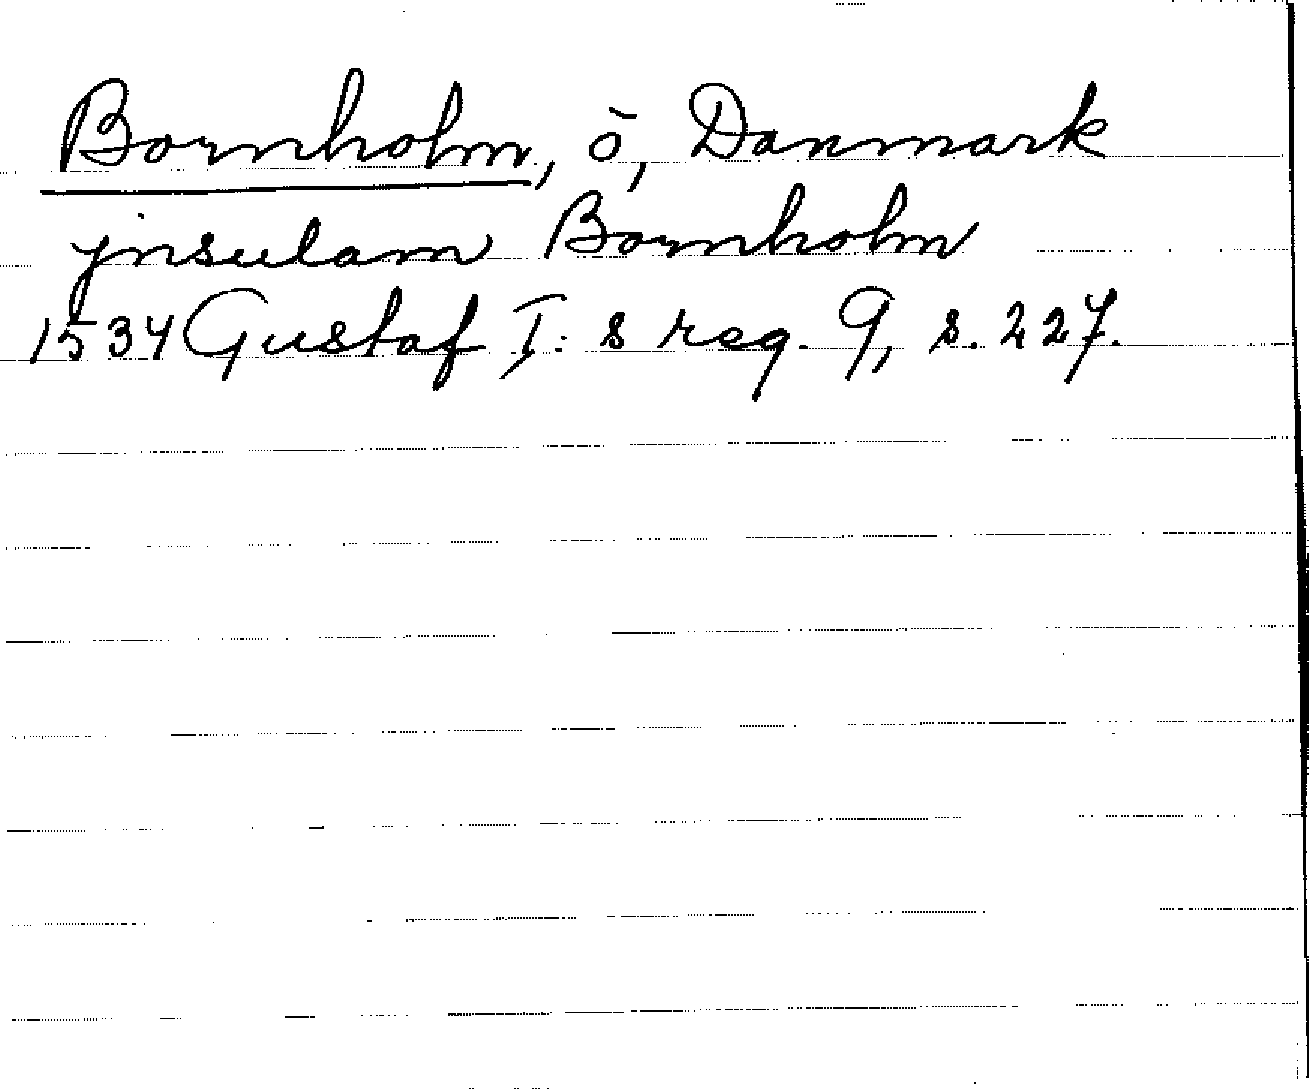 Bornholm, ö, Danmark
jnsulam Bornholm
1534 Gustaf I:s reg. 9, s. 227.